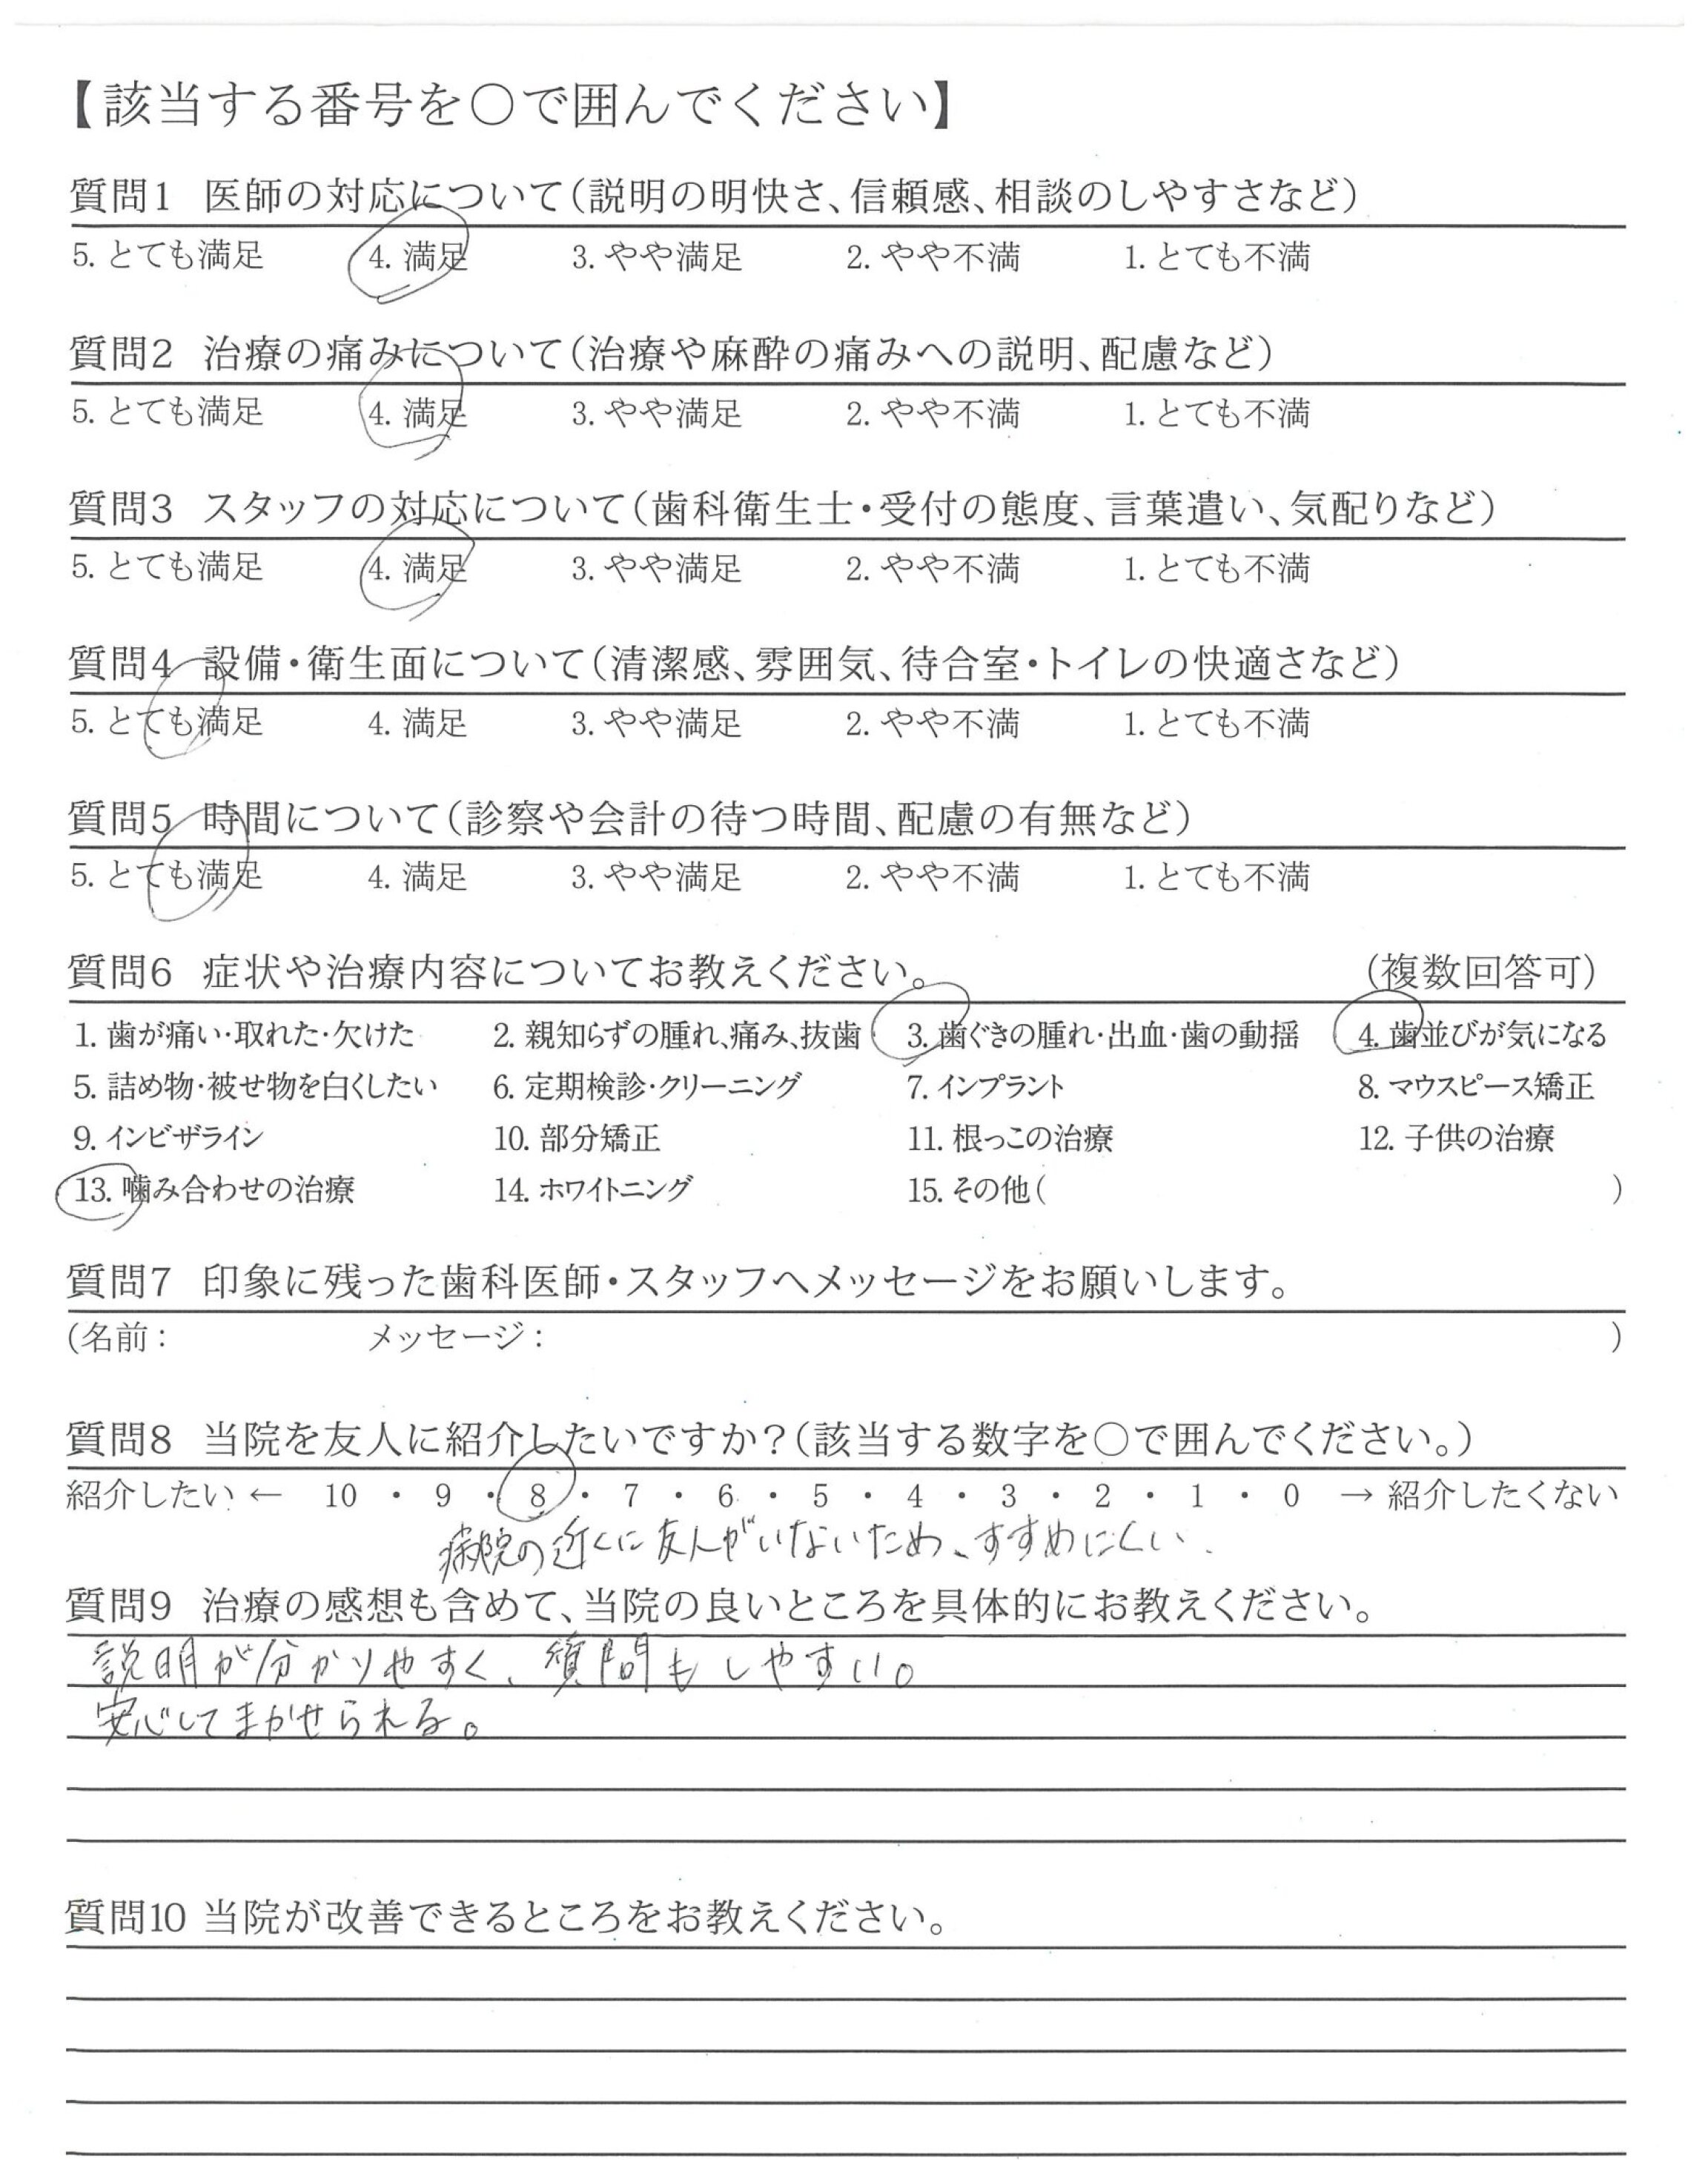 【該当する番号を〇で囲んでください】
質問1 医師の対応について(説明の明快さ、信頼感、相談のしやすさなど)
5. とても満足 4. 満足 3. やや満足 2. やや不満 1. とても不満
質問2 治療の痛みについて(治療や麻酔の痛みへの説明、配慮など)
5. とても満足 4. 満足 3. やや満足 2. やや不満 1. とても不満
質問3 スタッフの対応について(歯科衛生士・受付の態度、言葉遣い、気配りなど)
5. とても満足 4. 満足 3. やや満足 2. やや不満 1. とても不満
質問4 設備・衛生面について(清潔感、雰囲気、待合室・トイレの快適さなど)
5. とても満足 4. 満足 3. やや満足 2. やや不満 1. とても不満
質問5 時間について(診察や会計の待つ時間、配慮の有無など)
5. とても満足 4. 満足 3. やや満足 2. やや不満 1. とても不満
質問6 症状や治療内容についてお教えください。 (複数回答可)
1. 歯が痛い・取れた・欠けた 2. 親知らずの腫れ、痛み、抜歯 3. 歯ぐきの腫れ・出血・歯の動揺 4. 歯並びが気になる
5. 詰め物・被せ物を白くしたい 6. 定期検診・クリーニング 7. インプラント 8. マウスピース矯正
9. インビザライン 10. 部分矯正 11. 根っこの治療 12. 子供の治療
13. 噛み合わせの治療 14. ホワイトニング 15. その他( )
質問7 印象に残った歯科医師・スタッフへメッセージをお願いします。
(名前: メッセージ: )
質問8 当院を友人に紹介したいですか?(該当する数字を〇で囲んでください。)
紹介したい ← 10 ・ 9 ・ 8 ・ 7 ・ 6 ・ 5 ・ 4 ・ 3 ・ 2 ・ 1 ・ 0 → 紹介したくない
病院の近くに友人がいないため、すすめにくい.
質問9 治療の感想も含めて、当院の良いところを具体的にお教えください。
説明が分かりやすく、質問もしやすい。
安心してまかせられる。
質問10 当院が改善できるところをお教えください。